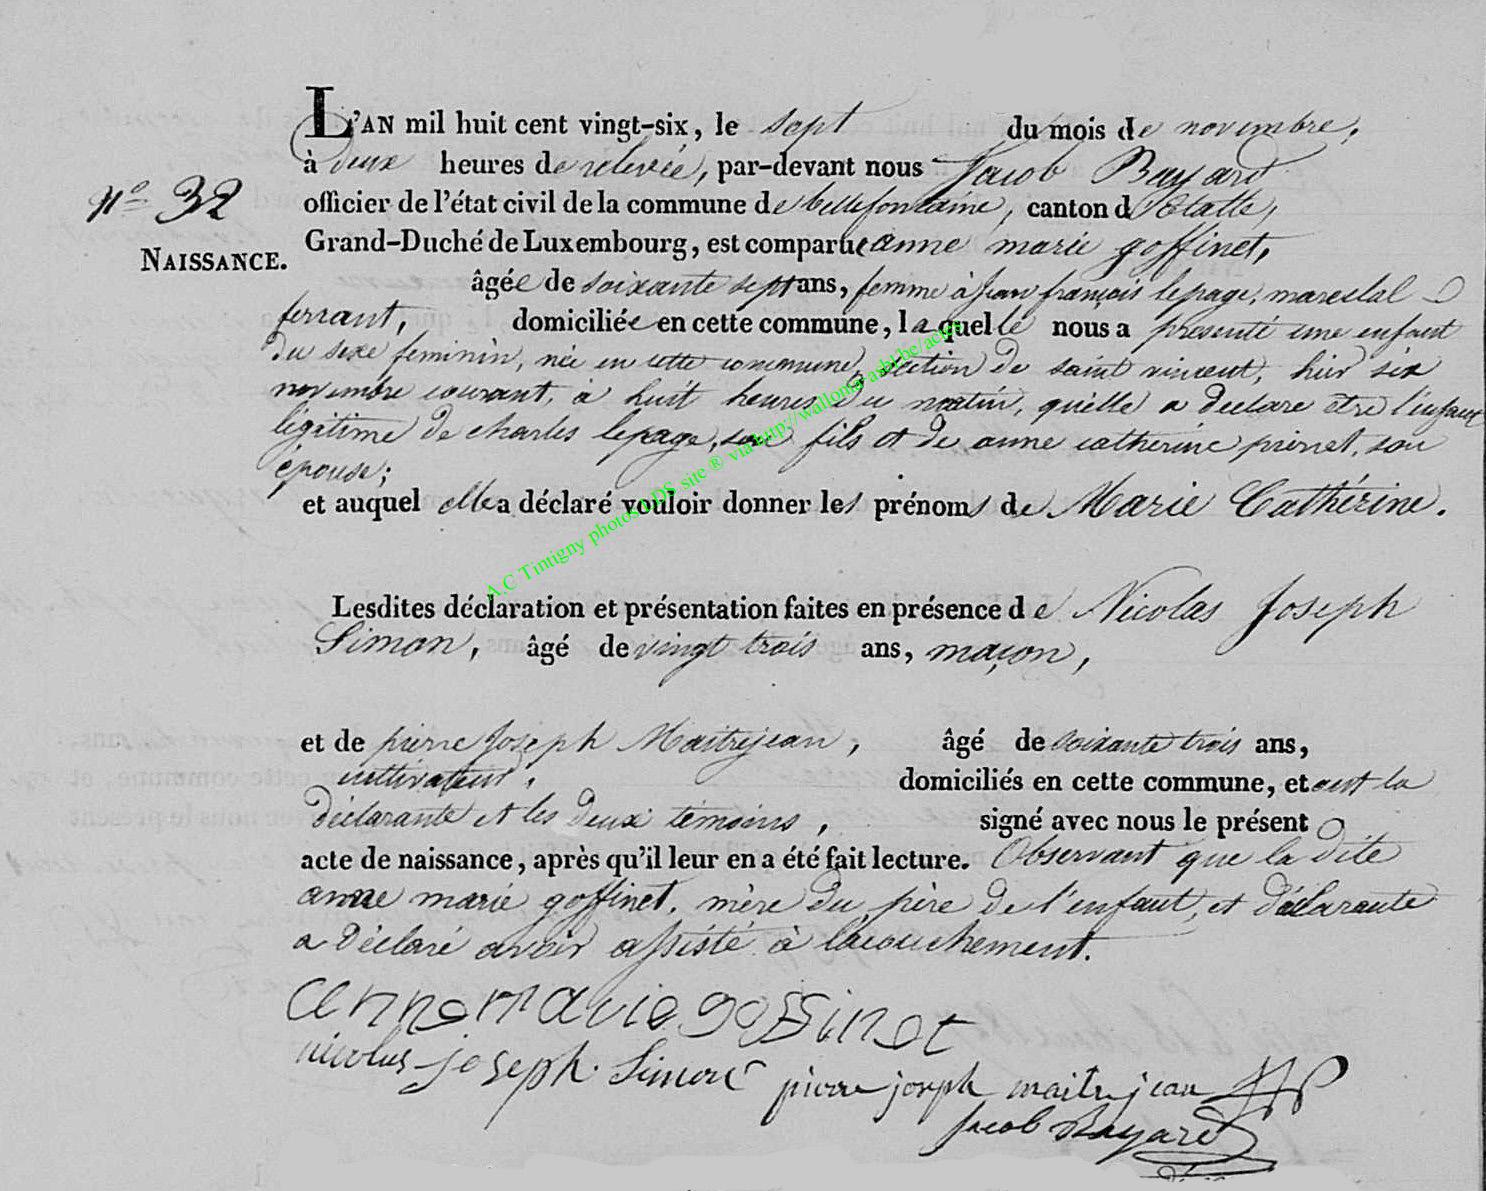 L'AN mil huit cent vingt-six, le sept du mois de novembre,
à deux heures de relevée, par-devant nous Jacob Bayard
officier de l'état civil de la commune de bellefontaine, canton d'Etalle,
Grand-Duché de Luxembourg, est comparue anne marie goffinet,
N.o 32
NAISSANCE.
âgée de soixante sept ans, femme à jean françois lepage, marechal
ferrant, domiciliée en cette commune, laquelle nous a presenté une enfant
du sexe feminin, née en cette commune, section de saint vincent, hier six
novembre courant, à huit heures du matin, quelle a declaré etre l'enfant
légitime de charles lepage, son fils et de anne catherine pierret, son
épouse;
et auquel elle a déclaré vouloir donner les prénoms de Marie Cathérine.
A.C Tintigny photos LDS site ® via http://wallonia-asbl.be/actes
Lesdites déclaration et présentation faites en présence de Nicolas Joseph
Simon, âgé de vingt trois ans, maçon,
et de pierre Joseph Maitrejean, âgé de soixante trois ans,
cultivateur, domiciliés en cette commune, et ont la
déclarante et les deux témoins, signé avec nous le présent
acte de naissance, après qu'il leur en a été fait lecture. Observant que la dite
anne marie goffinet, mère du père de l'enfant, et déclarante
a déclaré avoir assisté à lacouchement.
anne marie goffinet
nicolas joseph Simon pierre joseph maitrejean
Jacob Bayard